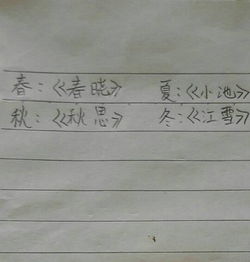 春：《春晓》 夏：《小池》
秋：《秋思》 冬：《江雪》